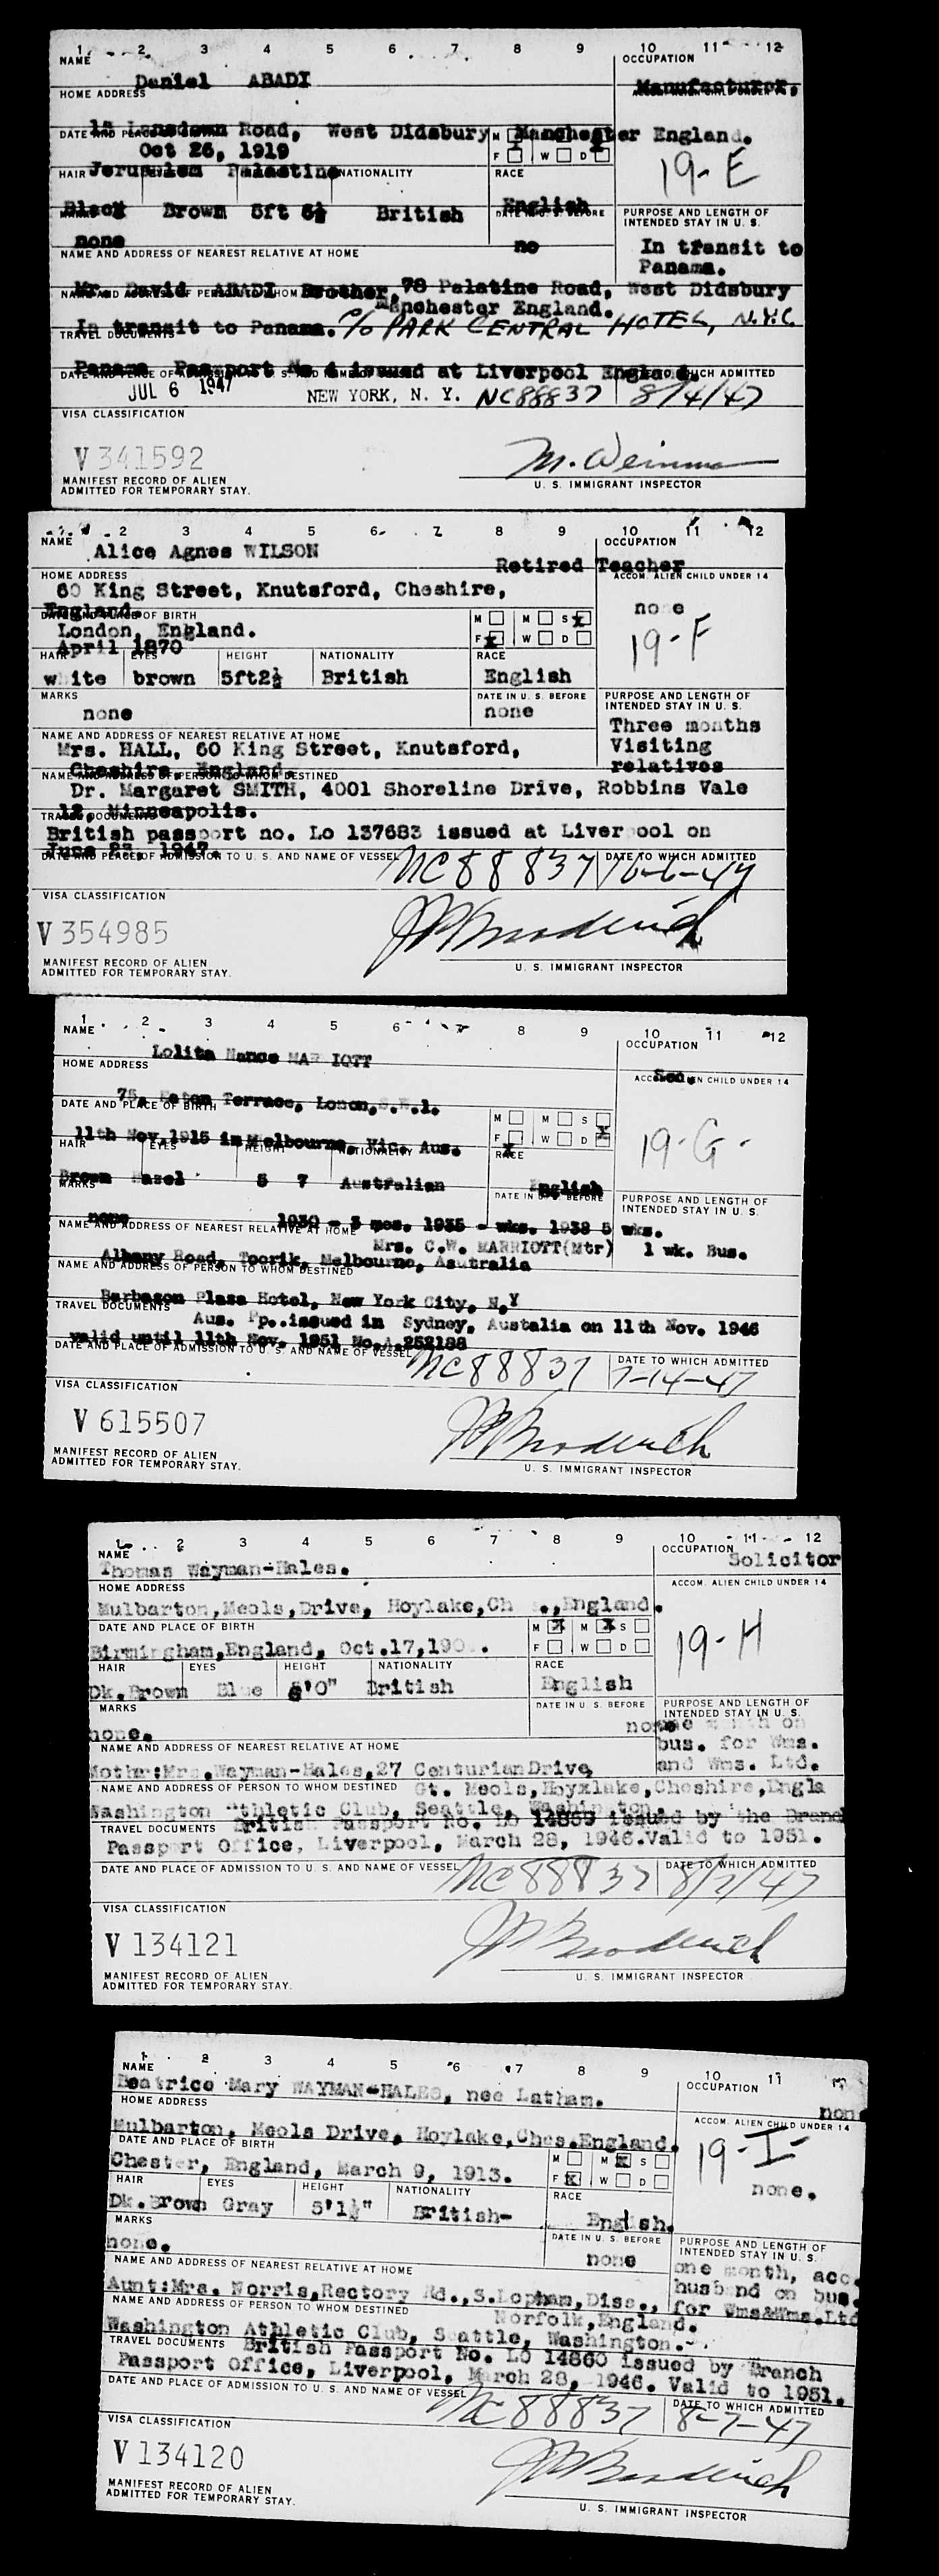 1 2 3 4 5 6 7 8 9 10 11 12
NAME OCCUPATION
Daniel ABADI Manufacturer.
HOME ADDRESS
Lansdown Road, West Didsbury Manchester England.
DATE AND PLACE
M
Oct 26, 1919
F W D
19-E
Jerusalem Palestine
HAIR NATIONALITY RACE
Black Brown 5ft 6½ British English
PURPOSE AND LENGTH OF
INTENDED STAY IN U. S.
none no In transit to
Panama.
NAME AND ADDRESS OF NEAREST RELATIVE AT HOME
Mr. David ABADI Brother, 78 Palatine Road, West Didsbury
Manchester England.
In transit to Panama. C/O PARK CENTRAL HOTEL, N.Y.C.
TRAVEL DOCUMENTS
Panama Passport No issued at Liverpool England.
JUL 6 1947 NEW YORK, N. Y. NC88837 8/4/47
VISA CLASSIFICATION
V 341592
M. Weinman
MANIFEST RECORD OF ALIEN
ADMITTED FOR TEMPORARY STAY.
U. S. IMMIGRANT INSPECTOR
2 3 4 5 6 7 8 9 10 11 12
NAME OCCUPATION
Alice Agnes WILSON
Retired Teacher
HOME ADDRESS ACCOM. ALIEN CHILD UNDER 14
60 King Street, Knutsford, Cheshire,
England. none
DATE AND PLACE OF BIRTH
London, England.
M M S X
April 1870
F X W D
19-F
HAIR EYES HEIGHT NATIONALITY RACE
white brown 5ft2½ British English
MARKS DATE IN U. S. BEFORE PURPOSE AND LENGTH OF
INTENDED STAY IN U. S.
none none
Three months
Visiting
relatives
NAME AND ADDRESS OF NEAREST RELATIVE AT HOME
Mrs. HALL, 60 King Street, Knutsford,
Cheshire, England.
NAME AND ADDRESS OF PERSON TO WHOM DESTINED
Dr. Margaret SMITH, 4001 Shoreline Drive, Robbins Vale
12, Minneapolis.
TRAVEL DOCUMENTS
British passport no. Lo 137683 issued at Liverpool on
June 23, 1947.
DATE AND PLACE OF ADMISSION TO U. S. AND NAME OF VESSEL DATE TO WHICH ADMITTED
NC88837 10-6-47
VISA CLASSIFICATION
V 354985
MANIFEST RECORD OF ALIEN
ADMITTED FOR TEMPORARY STAY.
U. S. IMMIGRANT INSPECTOR
1 2 3 4 5 6 7 8 9 10 11 12
NAME OCCUPATION
Lolita Nance MARRIOTT
Sec.
HOME ADDRESS ACCOM. ALIEN CHILD UNDER 14
75, Eaton Terrace, Lonon, S.W.1.
DATE AND PLACE OF BIRTH
M M S
11th Nov. 1915 in Melbourne, Vic. Aus.
F X W D X
19-G-
HAIR EYES HEIGHT NATIONALITY RACE
Brown Hazel 5 7 Australian English
MARKS DATE IN U. S. BEFORE PURPOSE AND LENGTH OF
INTENDED STAY IN U. S.
none 1930 - 3 mos. 1935 - wks. 1938 5 wks.
NAME AND ADDRESS OF NEAREST RELATIVE AT HOME
Mrs. C.W. MARRIOTT(Mtr) 1 wk. Bus.
Albany Road, Toorik, Melbourne, Asutralia
NAME AND ADDRESS OF PERSON TO WHOM DESTINED
Barbazon Plaza Hotel, New York City, N.Y
TRAVEL DOCUMENTS
Aus. Pp. issued in Sydney, Austalia on 11th Nov. 1946
valid until 11th Nov. 1951 No.A.252188
DATE AND PLACE OF ADMISSION TO U. S. AND NAME OF VESSEL DATE TO WHICH ADMITTED
NC88837 7-14-47
VISA CLASSIFICATION
V 615507
MANIFEST RECORD OF ALIEN
ADMITTED FOR TEMPORARY STAY.
U. S. IMMIGRANT INSPECTOR
1 2 3 4 5 6 7 8 9 10 11 12
NAME OCCUPATION
Thomas Wayman-Hales. Solicitor
HOME ADDRESS ACCOM. ALIEN CHILD UNDER 14
Mulbarton,Meols,Drive, Hoylake,Ch .,England.
DATE AND PLACE OF BIRTH
M X M X S
Birmingham,England, Oct.17,190 .
F W D
19-H
HAIR EYES HEIGHT NATIONALITY RACE
Dk.Brown Blue 6'0" British English
MARKS DATE IN U. S. BEFORE PURPOSE AND LENGTH OF
INTENDED STAY IN U. S.
none. none
one month on
bus. for Wms.
and Wms. Ltd.
NAME AND ADDRESS OF NEAREST RELATIVE AT HOME
Mothr:Mrs.Wayman-Hales,27 CenturianDrive,
NAME AND ADDRESS OF PERSON TO WHOM DESTINED Gt. Meols,Hoyxlake,Cheshire,Engla
Washington Athletic Club, Seattle, Washington.
TRAVEL DOCUMENTS British Passport No. LO 14859 issued by the Branch
Passport Office, Liverpool, March 28, 1946.Valid to 1951.
DATE AND PLACE OF ADMISSION TO U. S. AND NAME OF VESSEL DATE TO WHICH ADMITTED
NC88837 8/7/47
VISA CLASSIFICATION
V 134121
MANIFEST RECORD OF ALIEN
ADMITTED FOR TEMPORARY STAY.
U. S. IMMIGRANT INSPECTOR
1 2 3 4 5 6 7 8 9 10 11
NAME OCCUPATION
Beatrice Mary WAYMAN-HALES, nee Latham. none
HOME ADDRESS ACCOM. ALIEN CHILD UNDER 14
Mulbarton, Meols Drive, Hoylake,Ches.England.
DATE AND PLACE OF BIRTH
M M X S
19-I-
Chester, England, March 9, 1913.
F X W D
none.
HAIR EYES HEIGHT NATIONALITY RACE
Dk.Brown Gray 5'1½" British- English.
MARKS DATE IN U. S. BEFORE PURPOSE AND LENGTH OF
INTENDED STAY IN U. S.
none. none
one month, acc.
husband on bus.
for Wms&Wms.Ltd
NAME AND ADDRESS OF NEAREST RELATIVE AT HOME
Aunt:Mrs. Norris,Rectory Rd.,S.Lopham,Diss.,
NAME AND ADDRESS OF PERSON TO WHOM DESTINED Norfolk,England.
Washington Athletic Club, Seattle, Washington.
TRAVEL DOCUMENTS British Passport No. LO 14860 issued by Branch
Passport Office, Liverpool, March 28, 1946. Valid to 1951.
DATE AND PLACE OF ADMISSION TO U. S. AND NAME OF VESSEL DATE TO WHICH ADMITTED
NC88837 8-7-47
VISA CLASSIFICATION
V 134120
MANIFEST RECORD OF ALIEN
ADMITTED FOR TEMPORARY STAY.
U. S. IMMIGRANT INSPECTOR